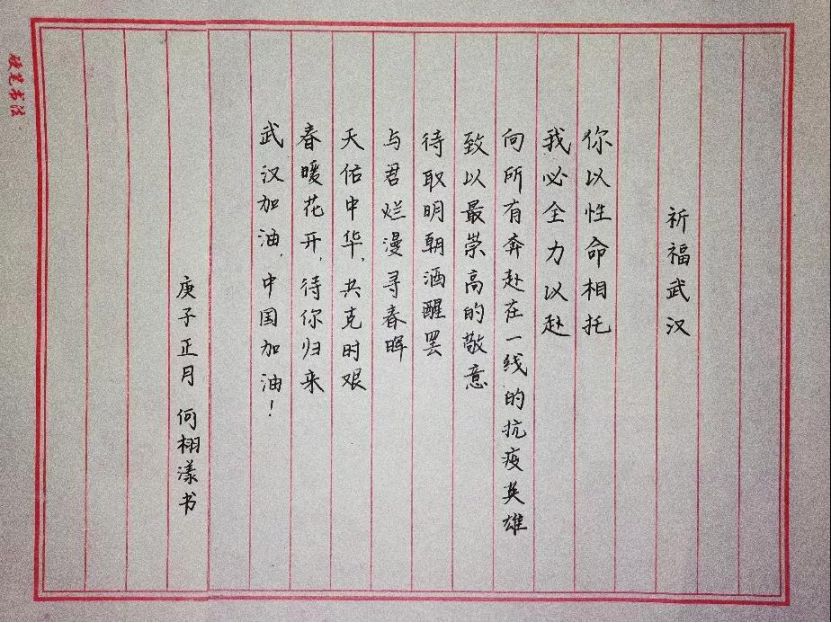 祈福武汉
你以性命相托
我必全力以赴
向所有奔赴在一线的抗疫英雄
致以最崇高的敬意
待取明朝酒醒罢
与君烂漫寻春晖
天佑中华,共克时艰
春暖花开,待你归来
武汉加油,中国加油!
庚子正月 何栩漾书
硬笔书法